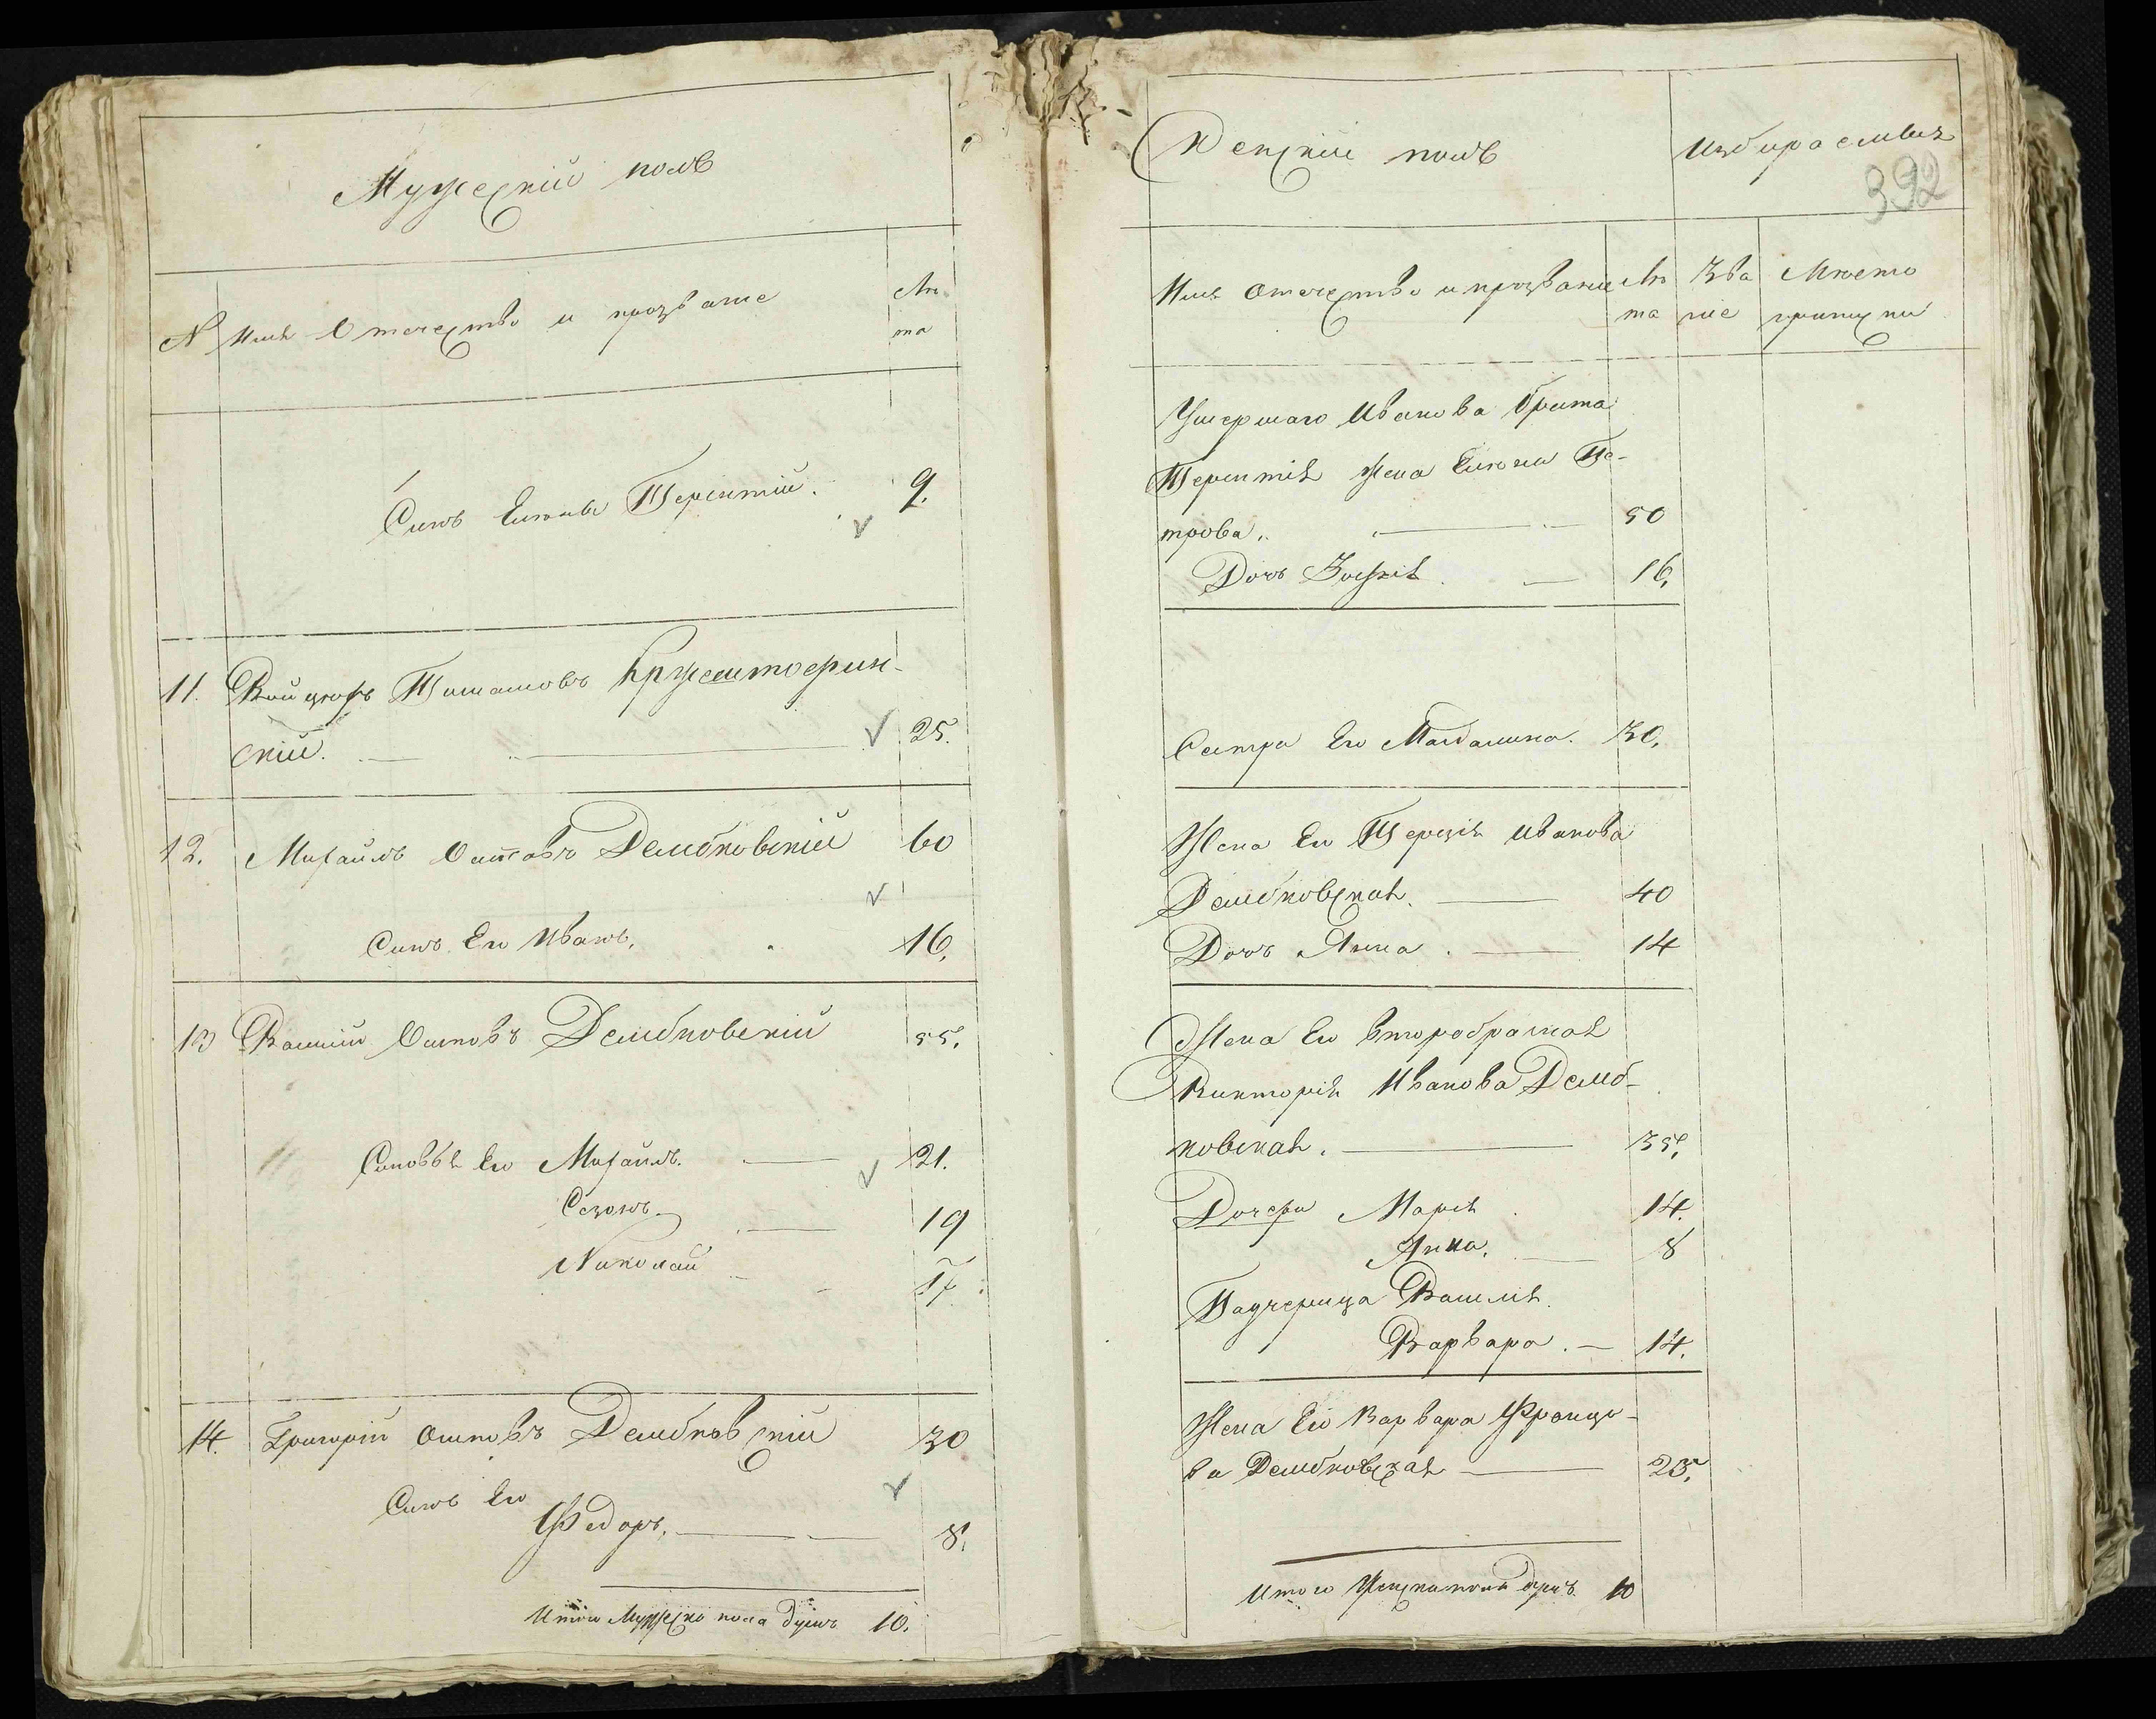 Мужескій полъ
N Имя Отечество и прозваніе Лѣ
та
Сынъ Терентій. 9.
11. Войцехъ Томашовъ Кржештофин-
скій. 25.
12. Михайлъ Осиповъ Дембковскій 60
Сынъ Его Иванъ. 16.
13 Осиповъ Дембковскій 55.
Сыновья Его Михайлъ. 21.
19
Николай 17.
14. Григорій Осиповъ Дембковскій 30
Сынъ Его
Федоръ. 8.
Итого Мужеско пола душъ 10.
Женскій полъ Избираемыя
392
Имя Отечество и прозваніе Лѣ Зва Мѣсто
та ніе приписки
Умершаго Иванова брата
Терентія жена Пе-
трова. 50
Дочь Зофія. 16.
Сестра Его Магдалина. 30.
Жена Его Терезія Иванова
Дембковская. 40
Дочь Анна. 14
Жена Его второбрачная
Викторія Иванова Демб-
ковская. 35.
Дочери Марія 14.
Анна. 8
Падчерица
Варвара. 14.
Жена Его Варвара Францо-
ва Дембковская 25.
Итого Женска пола душъ 10